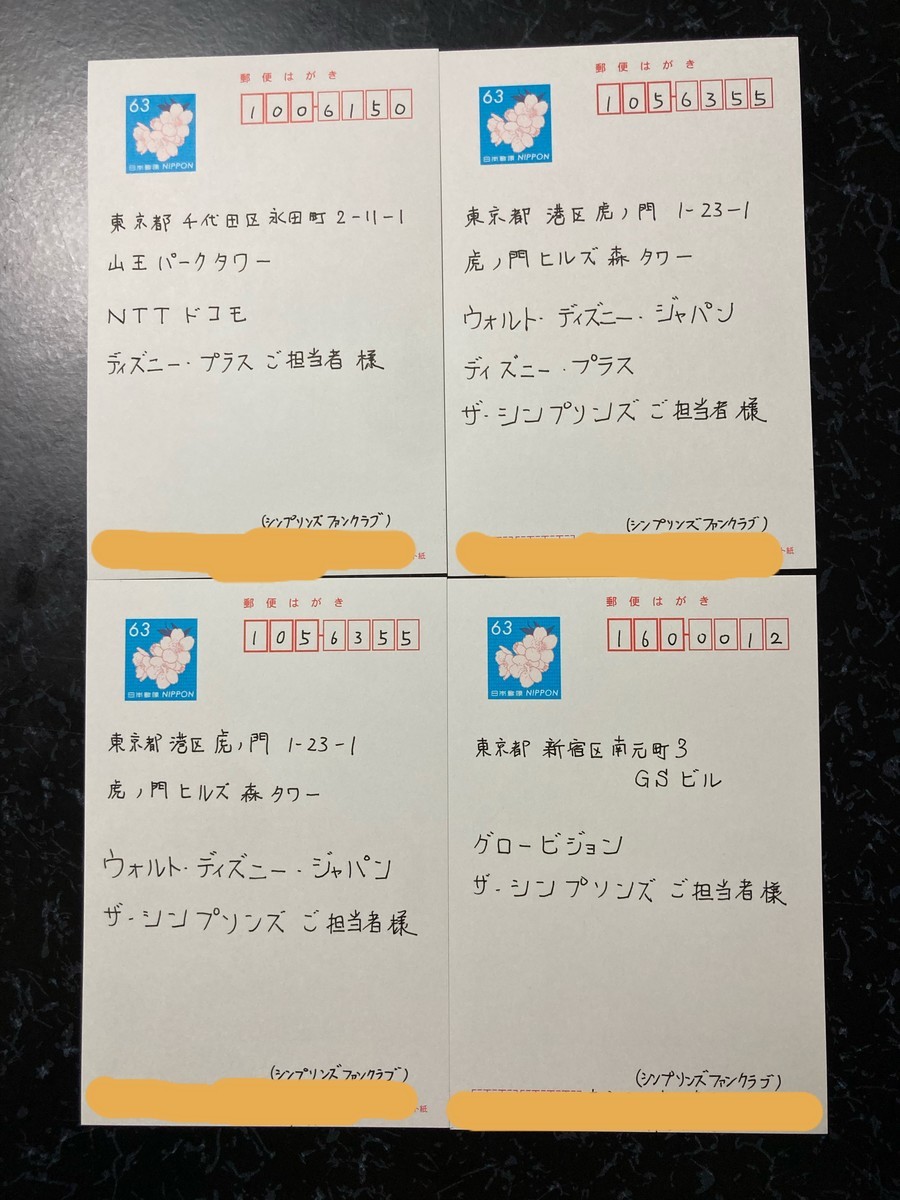 郵便はがき
63
日本郵便 NIPPON
1006150
東京都 千代田区 永田町 2-11-1
山王 パークタワー
NTT ドコモ
ディズニー・プラス ご担当者 様
(シンプソンズファンクラブ)
郵便はがき
63
日本郵便 NIPPON
1056355
東京都 港区虎ノ門 1-23-1
虎ノ門ヒルズ 森タワー
ウォルト・ディズニー・ジャパン
ディズニー・プラス
ザ・シンプソンズ ご担当者 様
(シンプソンズファンクラブ)
紙
郵便はがき
63
日本郵便 NIPPON
1056355
東京都 港区 虎ノ門 1-23-1
虎ノ門ヒルズ 森タワー
ウォルト・ディズニー・ジャパン
ザ・シンプソンズ ご担当者様
(シンプソンズファンクラブ)
紙
郵便はがき
63
日本郵便 NIPPON
1600012
東京都 新宿区南元町3
GSビル
グロービジョン
ザ・シンプソンズ ご担当者様
(シンプソンズファンクラブ)